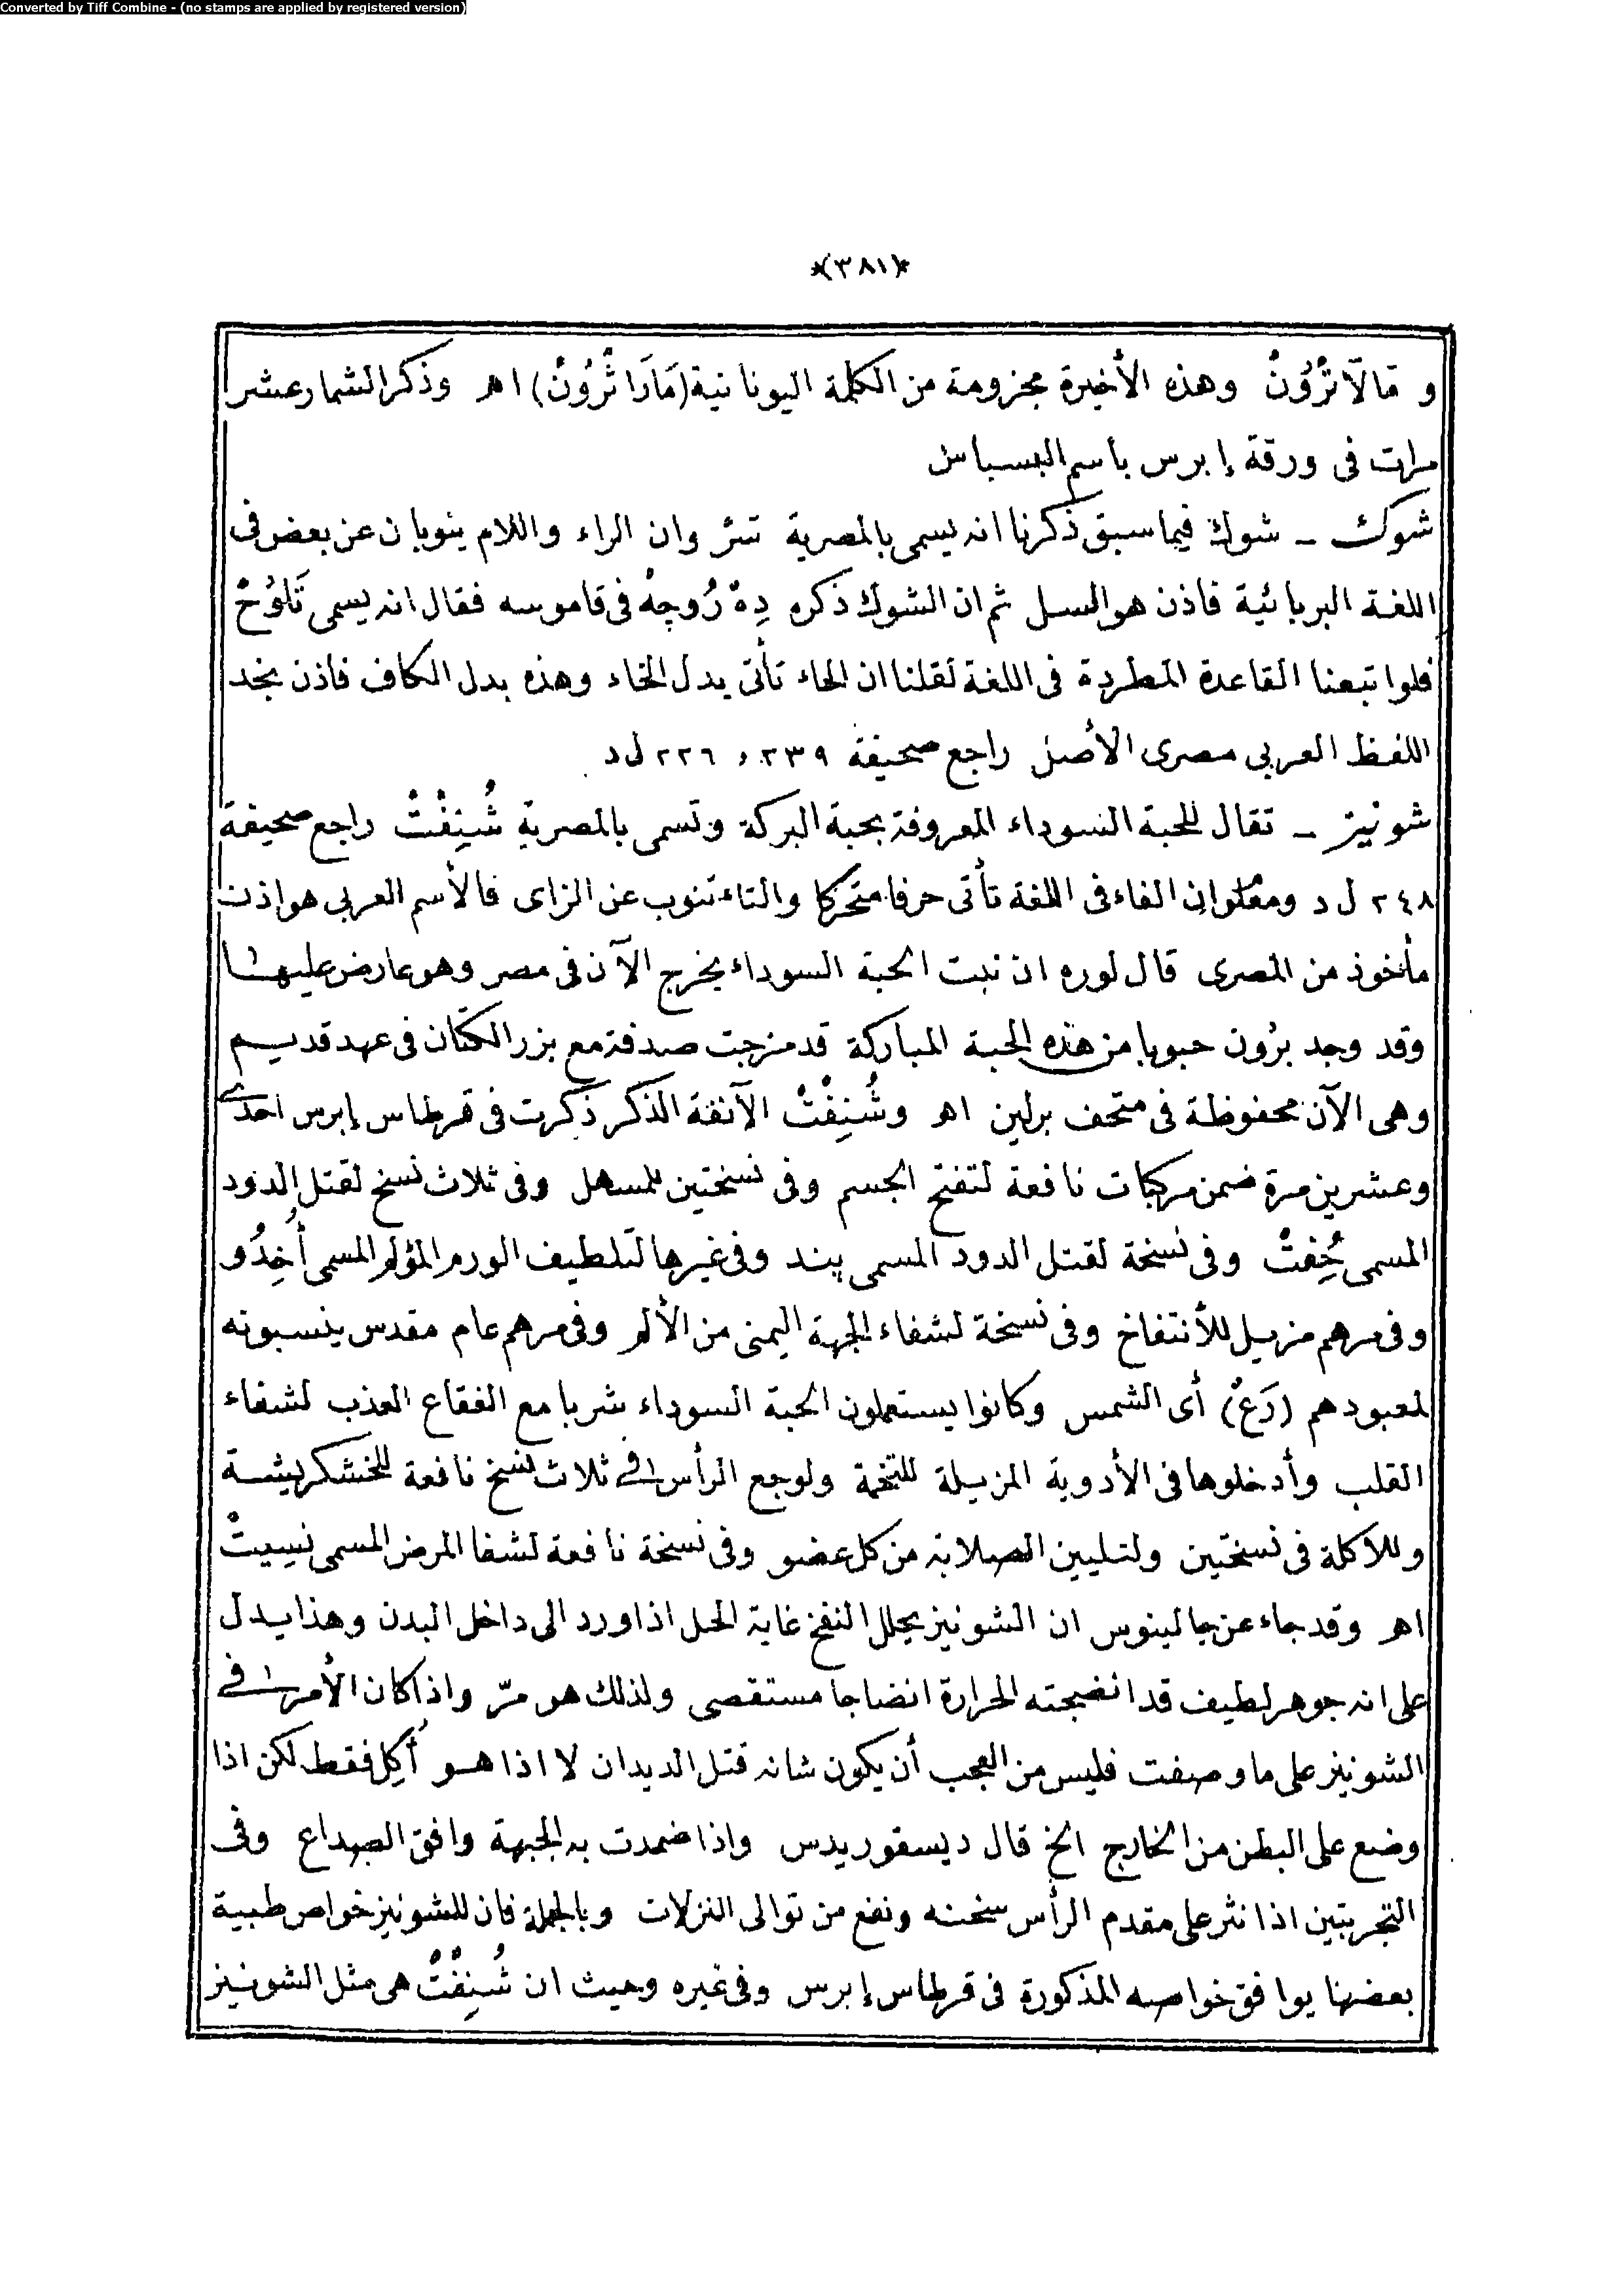 Converted by Tiff Combine - (no stamps are applied by registered version)
*(٣٨١)*
و مَالَاثْرُوُنْ وهذه الأخيرة مجزومة من الكلمة اليونانية (مَارَاثْرُونْ) اهر وذكر الشمار عشر
مرات فى ورقة إبرس بأسم البسباس
شوك – شوك فيما سبق ذكرنا انه يسمى بالمصرية تسر وان الراء واللام ينوبان عن بعض فى
اللغة البربائية فاذن هو السل ثم ان الشوك ذكره دِهْ رُوجِهْ فى قاموسه فقال انه يسمى تَلوُحْ
فلواتبعنا القاعدة المطردة فى اللغة لقلنا ان الحاء تأتى بدل الخاء وهذه بدل الكاف فاذن نجد
اللفظ العربى مصرى الأصل راجع صحيفة ٢٣٩ و ٢٢٦ ل د
شونيز – تقال للحبة السوداء المعروفة بحبة البركة وتسمى بالمصرية شُنِفْتْ راجع صحيفة
٢٤٨ ل د ومعلوم ان الفاء فى اللغة تأتى حرفا متحركا والتاء تنوب عن الزاى فالأسم العربى هو إذن
مأخوذ من المصرى قال لوره ان نبت الحبة السوداء يخرج الآن فى مصر وهو عارض عليها
وقد وجد برُون حبوبا من هذه الحبة المباركة قد مزجت صدفة مع بزر الكتّان فى عهد قديم
وهى الآن محفوظة فى متحف برلين اهر وشُنِفْتْ الآنفة الذكر ذكرت فى قرطاس إبرس احدى
وعشرين مرة ضمن مركبات نافعة لتفتح الجسم وفى نسختين للمسهل وفى ثلاث نسخ لقتل الدود
المسمى حُِفتْ وفى نسخة لقتل الدود المسمى پند وفى غيرها لتلطيف الورم المؤلم المسمى أُخِدُو
وفى مرهم مزيل للأنتفاخ وفى نسخة لشفاء الجهة اليمنى من الألم وفى مرهم عام مقدس ينسبونه
لمعبودهم (رَعْ) أى الشمس وكانوا يستعملون الحبة السوداء شربا مع الفقاع العذب لشفاء
القلب وأدخلوها فى الأدوية المزيلة للتخمة ولوجع الرأس فى ثلاث نسخ نافعة للخشكريشة
وللأكلة فى نسختين ولتليين الصلابة من كل عضو وفى نسخة نافعة لشفا المرض المسمى نسِيتْ
اهر وقد جاء عن جالينوس ان الشونيز يحلل النفخ غاية الحل اذا ورد الى داخل البدن وهذا يدل
على انه جوهر لطيف قد انضجته الحرارة انضاجا مستقصى ولذلك هو مرّ واذا كان الأمر فى
الشونيز على ما وصفت فليس من العجب أن يكون شانه قتل الديدان لا اذا هو أُكِل فقط لكن اذا
وضع على البطن من الخارج الخ قال ديسقوريدس واذا ضمدت به الجبهة وافق الصداع وفى
التجربتين اذا نثر على مقدم الرأس سخنه ونفع من توالى النزلات وبالجملة فان للشونيز خواص طبية
بعضها يوافق خواصه المذكورة فى قرطاس إبرس وفى غيره وحيث ان شُنِفْتْ هى مثل الشونيز